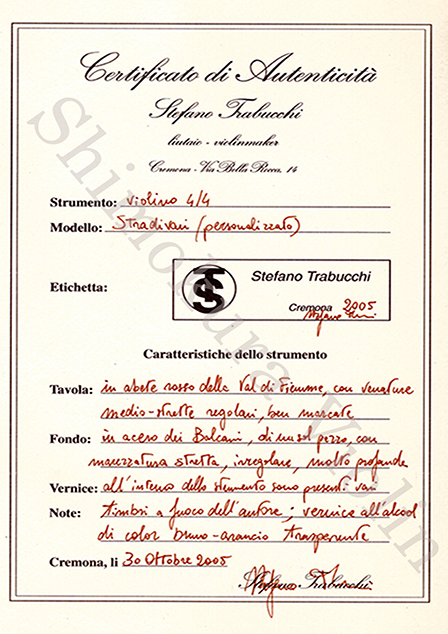 Certificato di Autenticità
Stefano Trabucchi
liutaio - violinmaker
Cremona - Via Bella Rocca, 14
Strumento: violino 4/4
Modello: Stradivari (personalizzato)
Etichetta:
TS
Stefano Trabucchi
Cremona 2005
Caratteristiche dello strumento
Tavola: in abete rosso della Val di Fiemme, con venature
medio-strette regolari, ben marcate
Fondo: in acero dei Balcani, di un sol pezzo, con
marezzatura stretta, irregolare, molto profonda
Vernice: all'interno dello strumento sono presenti vari
Note: timbri a fuoco dell'autore; vernice all'alcool
di color bruno-arancio trasparente
Cremona, li 30 Ottobre 2005
Stefano Trabucchi
Shimokura Violin